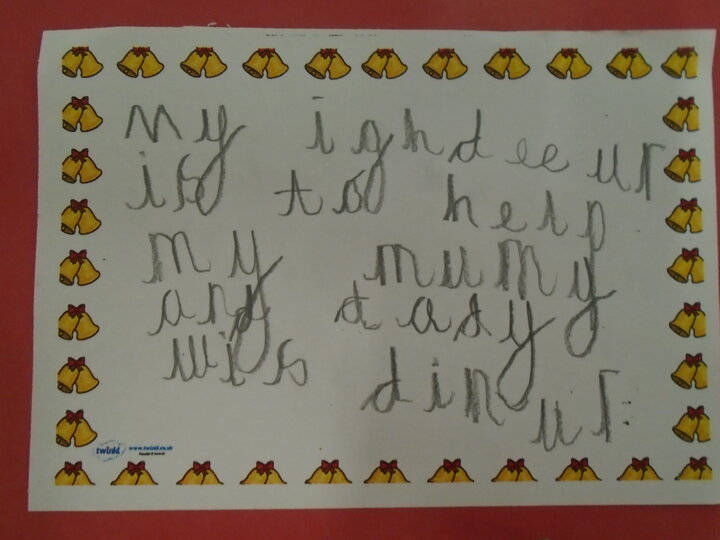 my ighdeeur
is to help
my mumy
and dady
wis dinur.
twinkl www.twinkl.co.uk